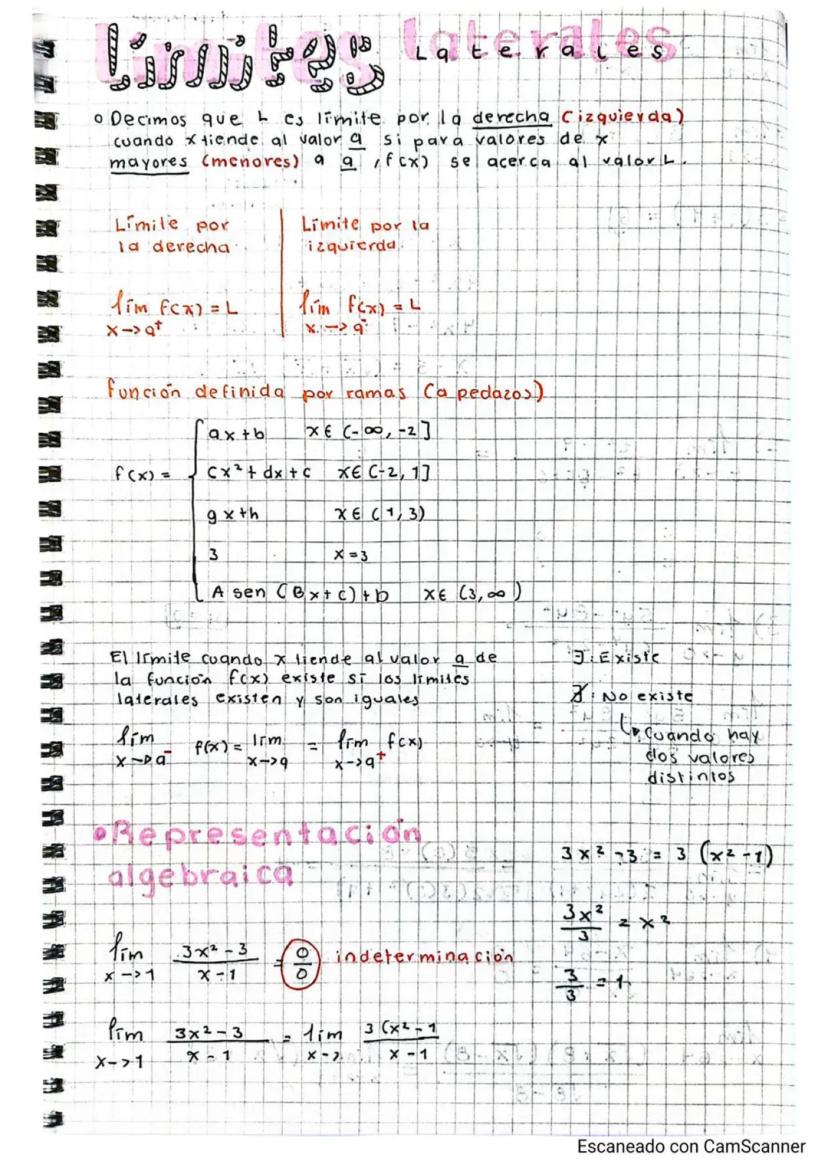 Límites Laterales
o Decimos que L es límite por la derecha (izquierda)
cuando x tiende al valor a si para valores de x
mayores (menores) a a, f(x) se acerca al valor L.
Límite por
la derecha
lím f(x) = L
x->a⁺
Límite por la
izquierda.
lím f(x) = L
x->a⁻
función definida por ramas (a pedazos)
f(x) =
ax+b x∈(-∞, -2]
cx²+dx+c x∈(-2, 1]
gx+h x∈(1, 3)
3 x=3
A sen (Bx+c)+b x∈(3,∞)
El límite cuando x tiende al valor a de
la función f(x) existe si los límites
laterales existen y son iguales
lím f(x) = lím = lím f(x)
x->a⁻ x->a x->a⁺
∃: Existe
∄: No existe
↳ Cuando hay
dos valores
distintos
•Representación
algebraica
lím 3x²-3 / x-1 = 0/0 indeterminación
x->1
lím 3x²-3 / x-1 = lím 3(x²-1 / x-1
x->1 x->
3x²-3 = 3 (x²-1)
3x²/3 = x²
3/3 = 1
Escaneado con CamScanner